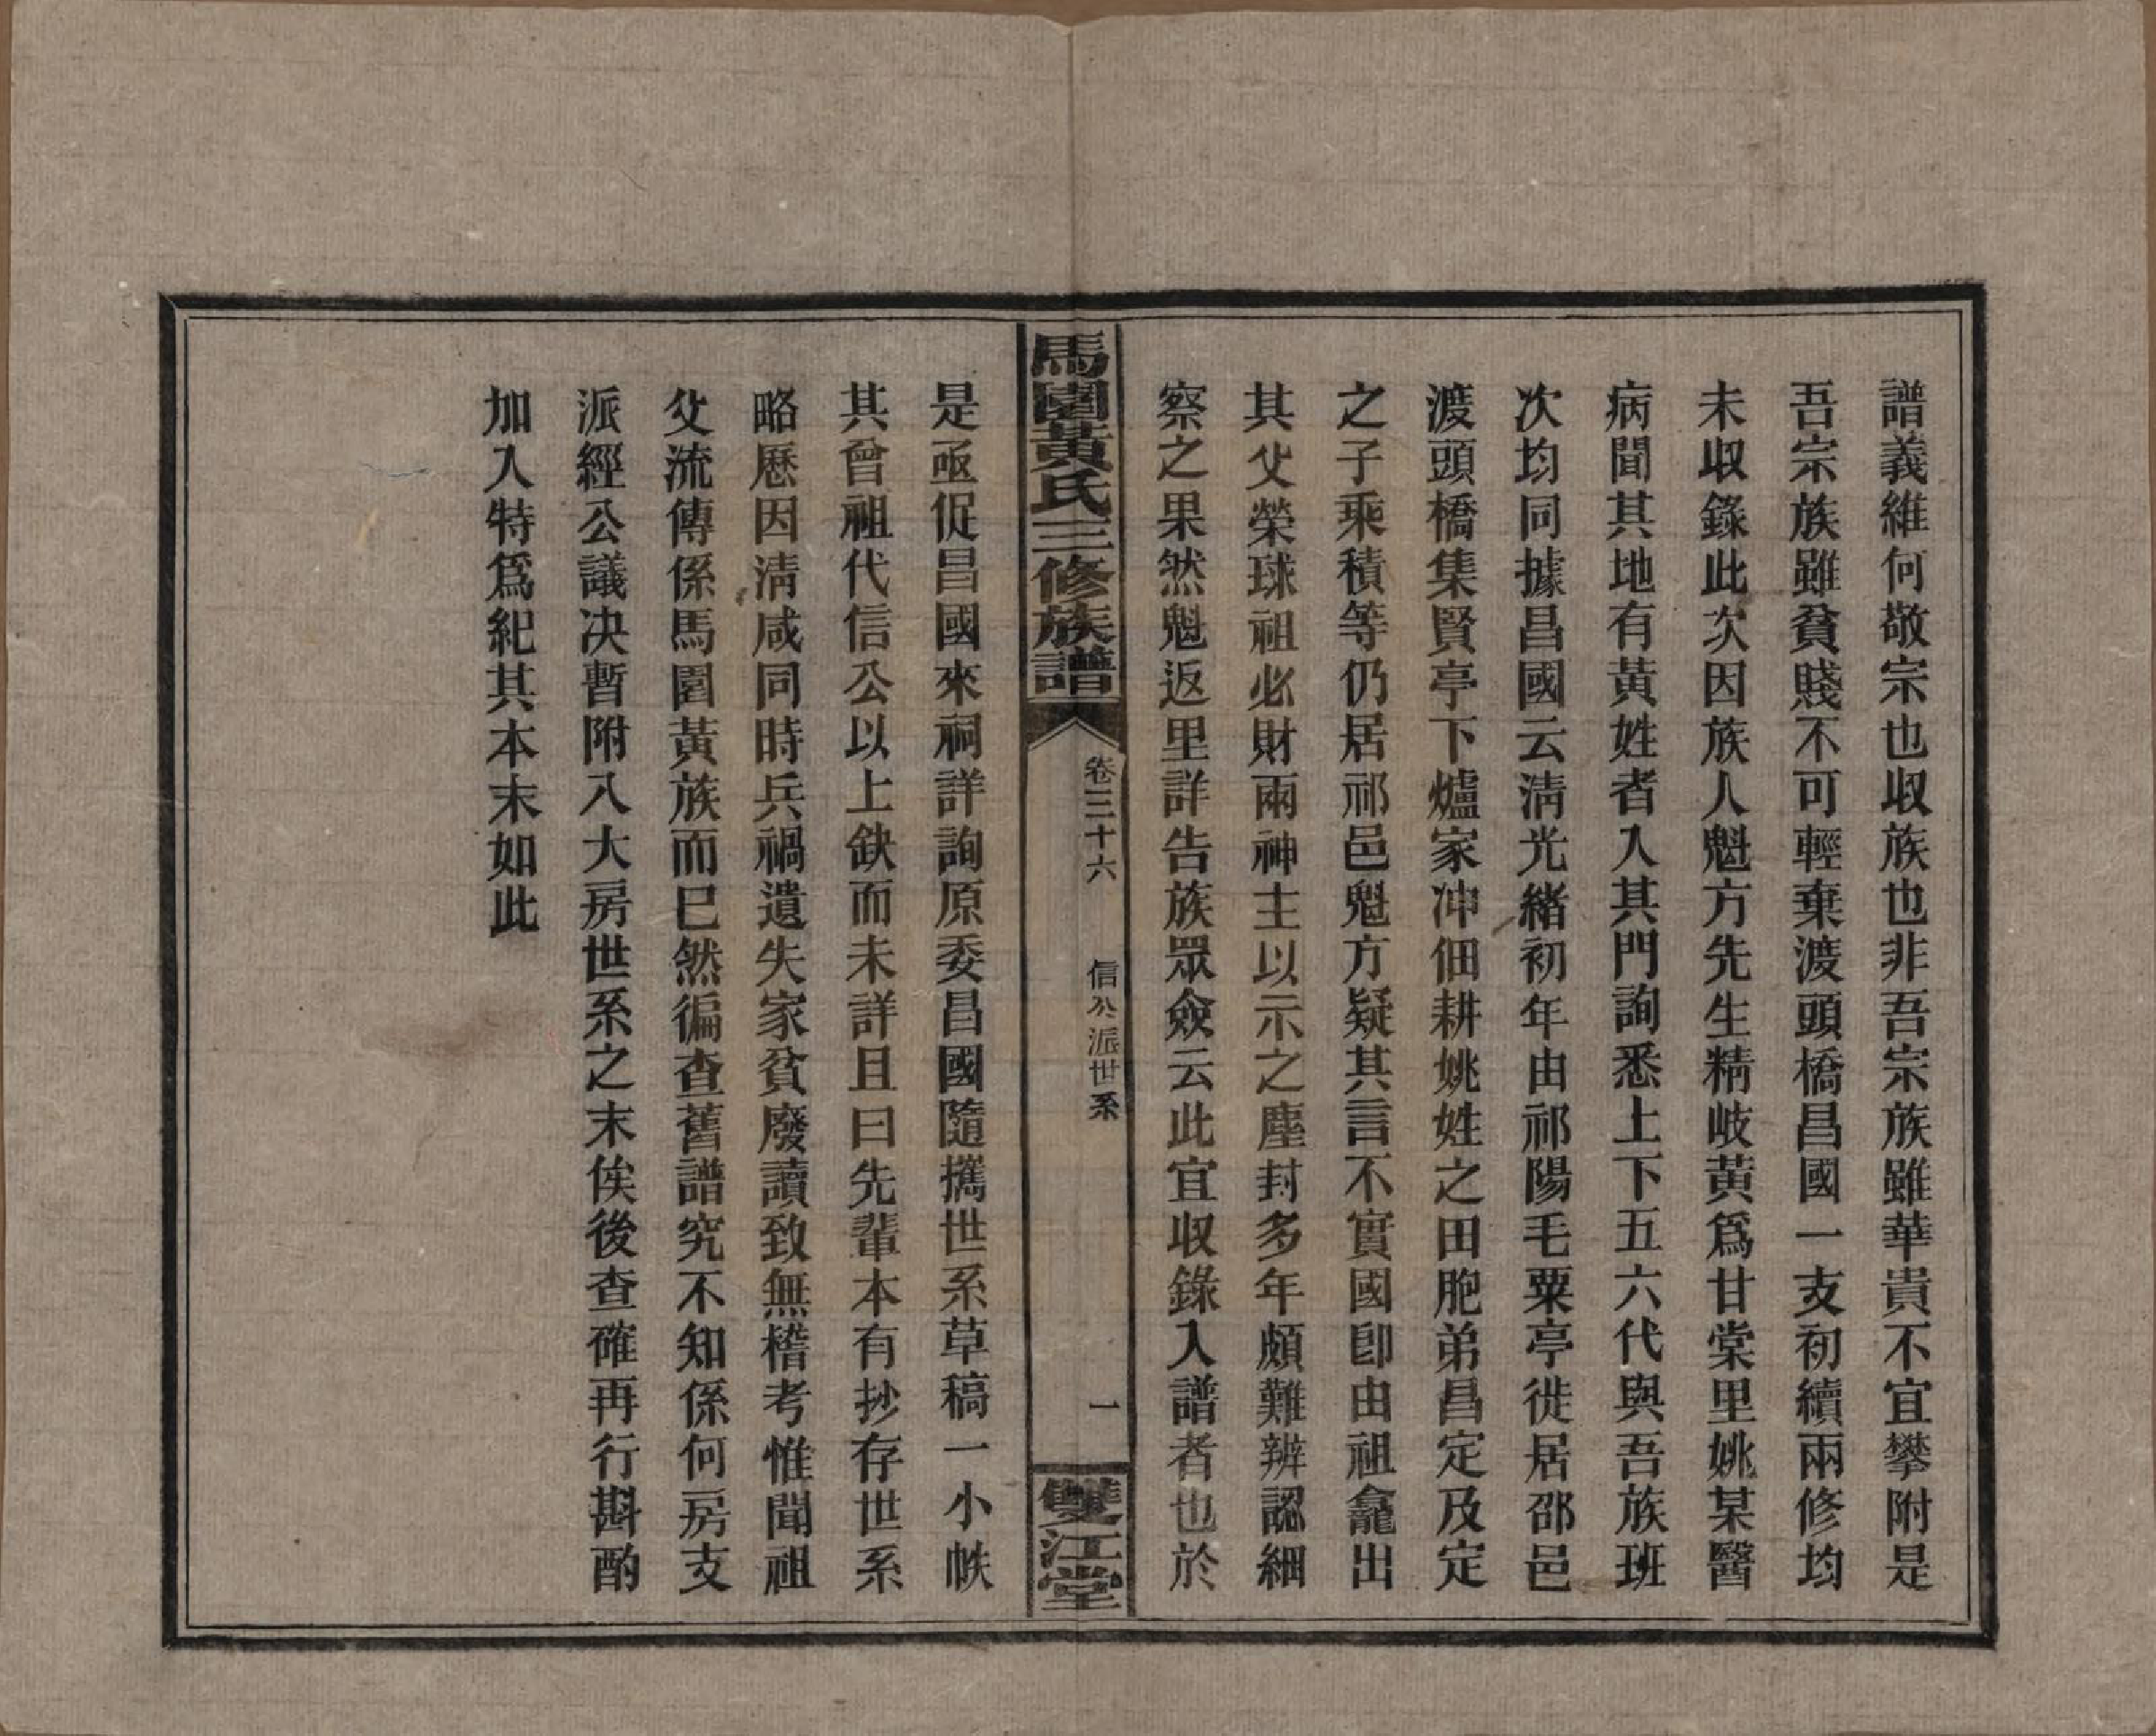 譜義維何敬宗也収族也非吾宗族雖華貴不宜攀附是
吾宗族雖貧賤不可輕棄渡頭橋昌國一支初續兩修均
未収錄此次因族人魁方先生精岐黃爲甘棠里姚某醫
病聞其地有黃姓者入其門詢悉上下五六代與吾族班
次均同據昌國云淸光緒初年由祁陽毛粟亭徙居邵邑
渡頭橋集賢亭下爐家冲佃耕姚姓之田胞弟昌定及定
之子乘積等仍居祁邑魁方疑其言不實國卽由祖龕出
其父榮球祖必財兩神主以示之塵封多年頗難辨認細
察之果然魁返里詳告族眾僉云此宜収錄入譜者也於
馬園黃氏三修族譜
卷三十六
信公派世系
一
雙江堂
是亟促昌國來祠詳詢原委昌國隨攜世系草稿一小帙
其曾祖代信公以上缺而未詳且曰先輩本有抄存世系
略歷因淸咸同時兵禍遺失家貧廢讀致無稽考惟聞祖
父流傳係馬園黃族而已然徧查舊譜究不知係何房支
派經公議决暫附入大房世系之末俟後查確再行斟酌
加入特爲紀其本末如此